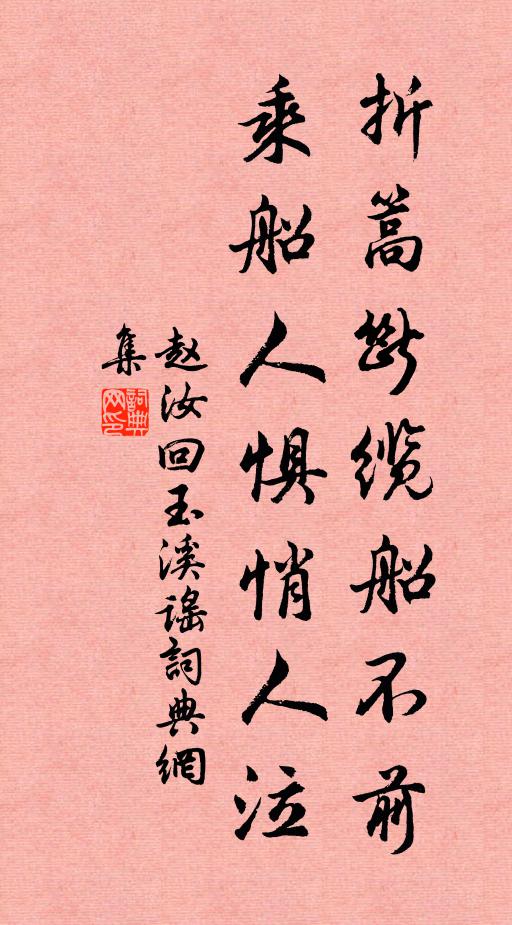 折篙断缆船不前
乘船人惧悄人泣
赵汝回玉溪谣詞典網
集
詞典
网印